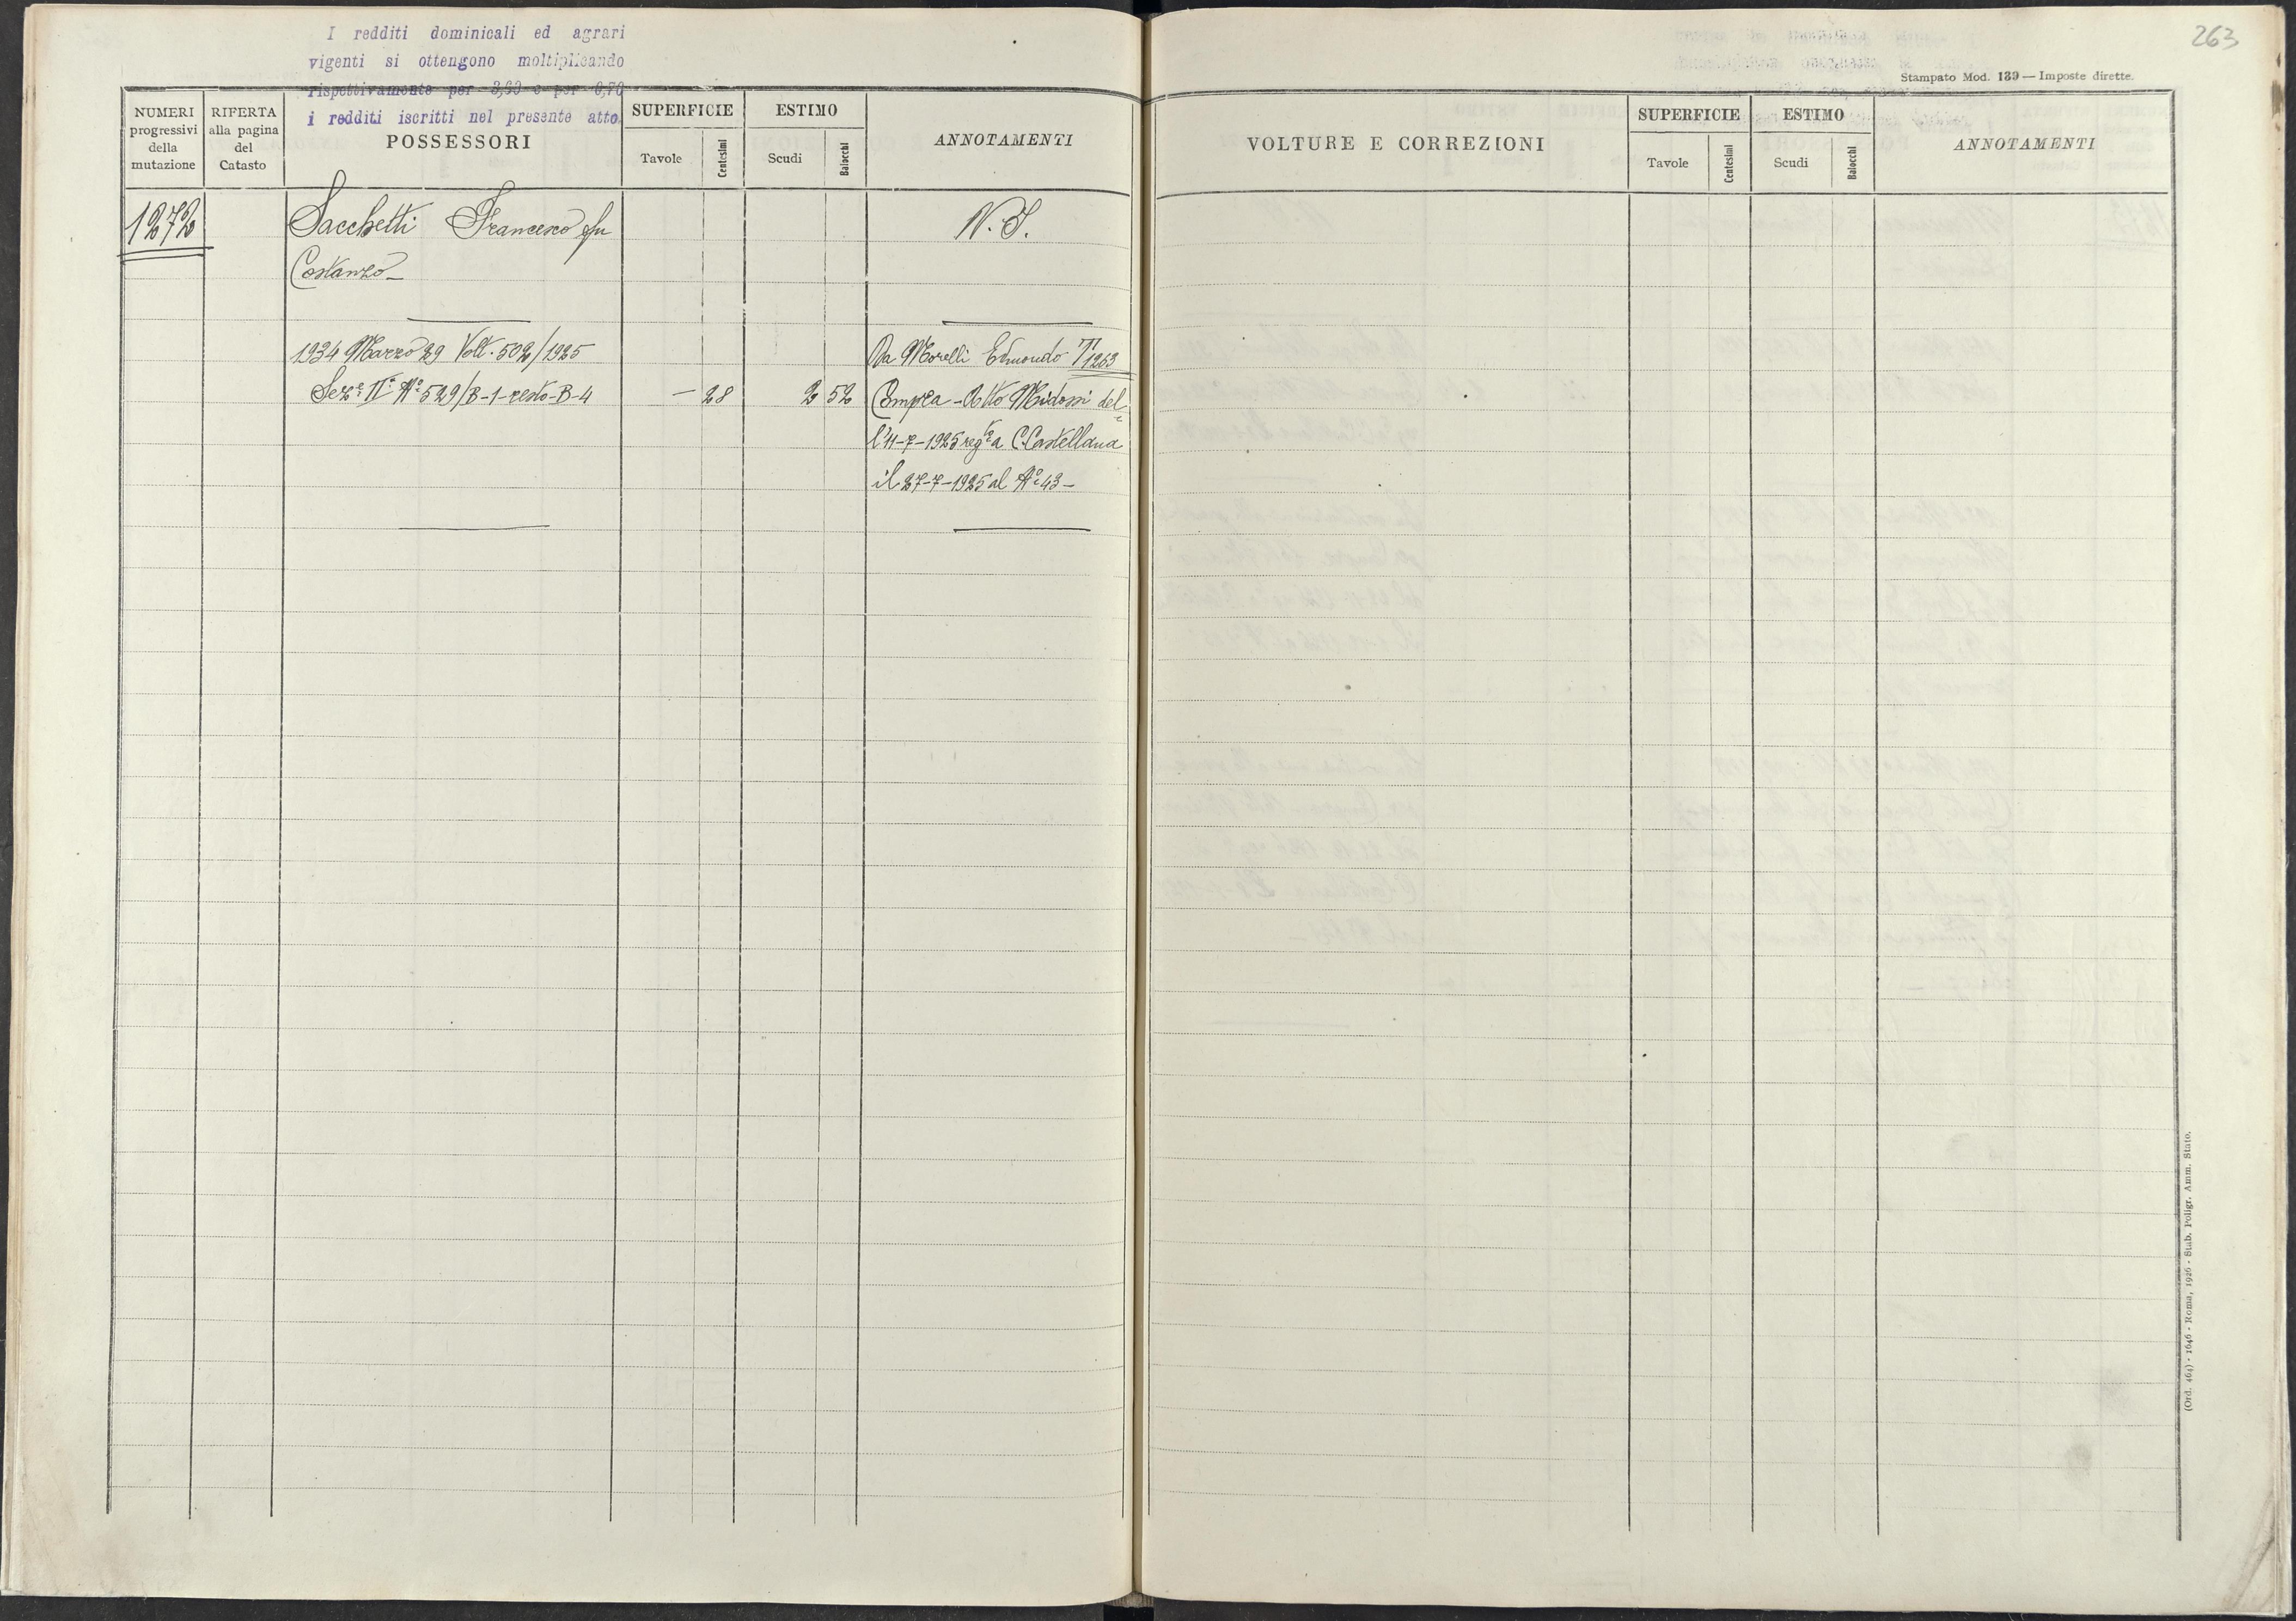 I redditi dominicali ed agrari
vigenti si ottengono moltiplicando
rispettivamente per 3,60 e per 0,70
i redditi iscritti nel presente atto.
NUMERI
progressivi
della
mutazione
RIFERTA
alla pagina
del
Catasto
POSSESSORI
SUPERFICIE
Tavole
Centesimi
ESTIMO
Scudi
Baiocchi
ANNOTAMENTI
1272 Sacchetti Francesco fu N. I.
Costanzo
1934 Marzo 29 Volt. 502/1925 Da Morelli Edmondo T 1263
Sez.e II.a N.° 529/B-1-resto-B-4 — 28 2 52 Compra - Atto Midossi del
l'11-7-1925 reg.to a C. Castellana
il 27-7-1925 al N.° 43 -
263
Stampato Mod. 139 — Imposte dirette.
VOLTURE E CORREZIONI
SUPERFICIE
Tavole
Centesimi
ESTIMO
Scudi
Baiocchi
ANNOTAMENTI
(Ord. 464) - 1646 - Roma, 1926 - Stab. Poligr. Amm. Stato.